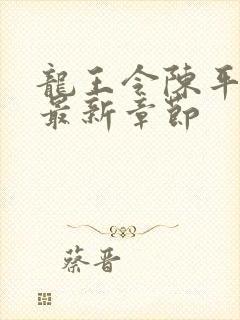 龍王令陳平
最新章節
蔡晋